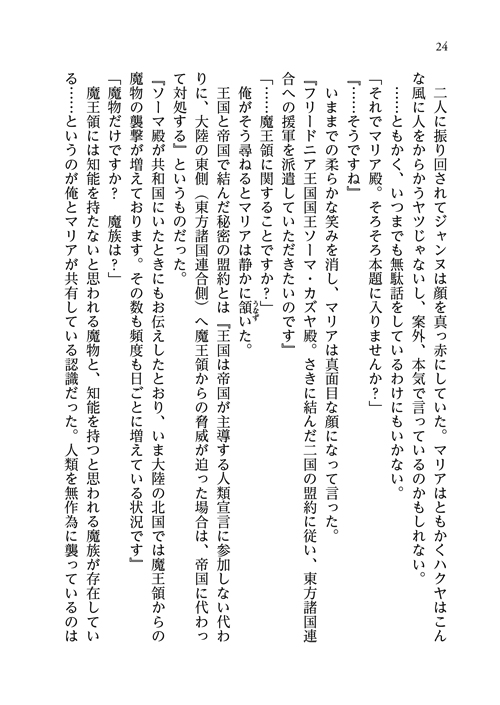 24
二人に振り回されてジャンヌは顔を真っ赤にしていた。マリアはともかくハクヤはこん
な風に人をからかうヤツじゃないし、案外、本気で言っているのかもしれない。
……ともかく、いつまでも無駄話をしているわけにもいかない。
「それでマリア殿。そろそろ本題に入りませんか？」
『……そうですね』
いままでの柔らかな笑みを消し、マリアは真面目な顔になって言った。
『フリードニア王国国王ソーマ・カズヤ殿。さきに結んだ二国の盟約に従い、東方諸国連
合への援軍を派遣していただきたいのです』
「……魔王領に関することですか？」
俺がそう尋ねるとマリアは静かに頷いた。
王国と帝国で結んだ秘密の盟約とは『王国は帝国が主導する人類宣言に参加しない代わ
りに、大陸の東側（東方諸国連合側）へ魔王領からの脅威が迫った場合は、帝国に代わっ
て対処する』というものだった。
『ソーマ殿が共和国にいたときにもお伝えしたとおり、いま大陸の北国では魔王領からの
魔物の襲撃が増えております。その数も頻度も日ごとに増えている状況です』
「魔物だけですか？　魔族は？」
魔王領には知能を持たないと思われる魔物と、知能を持つと思われる魔族が存在してい
る……というのが俺とマリアが共有している認識だった。人類を無作為に襲っているのは